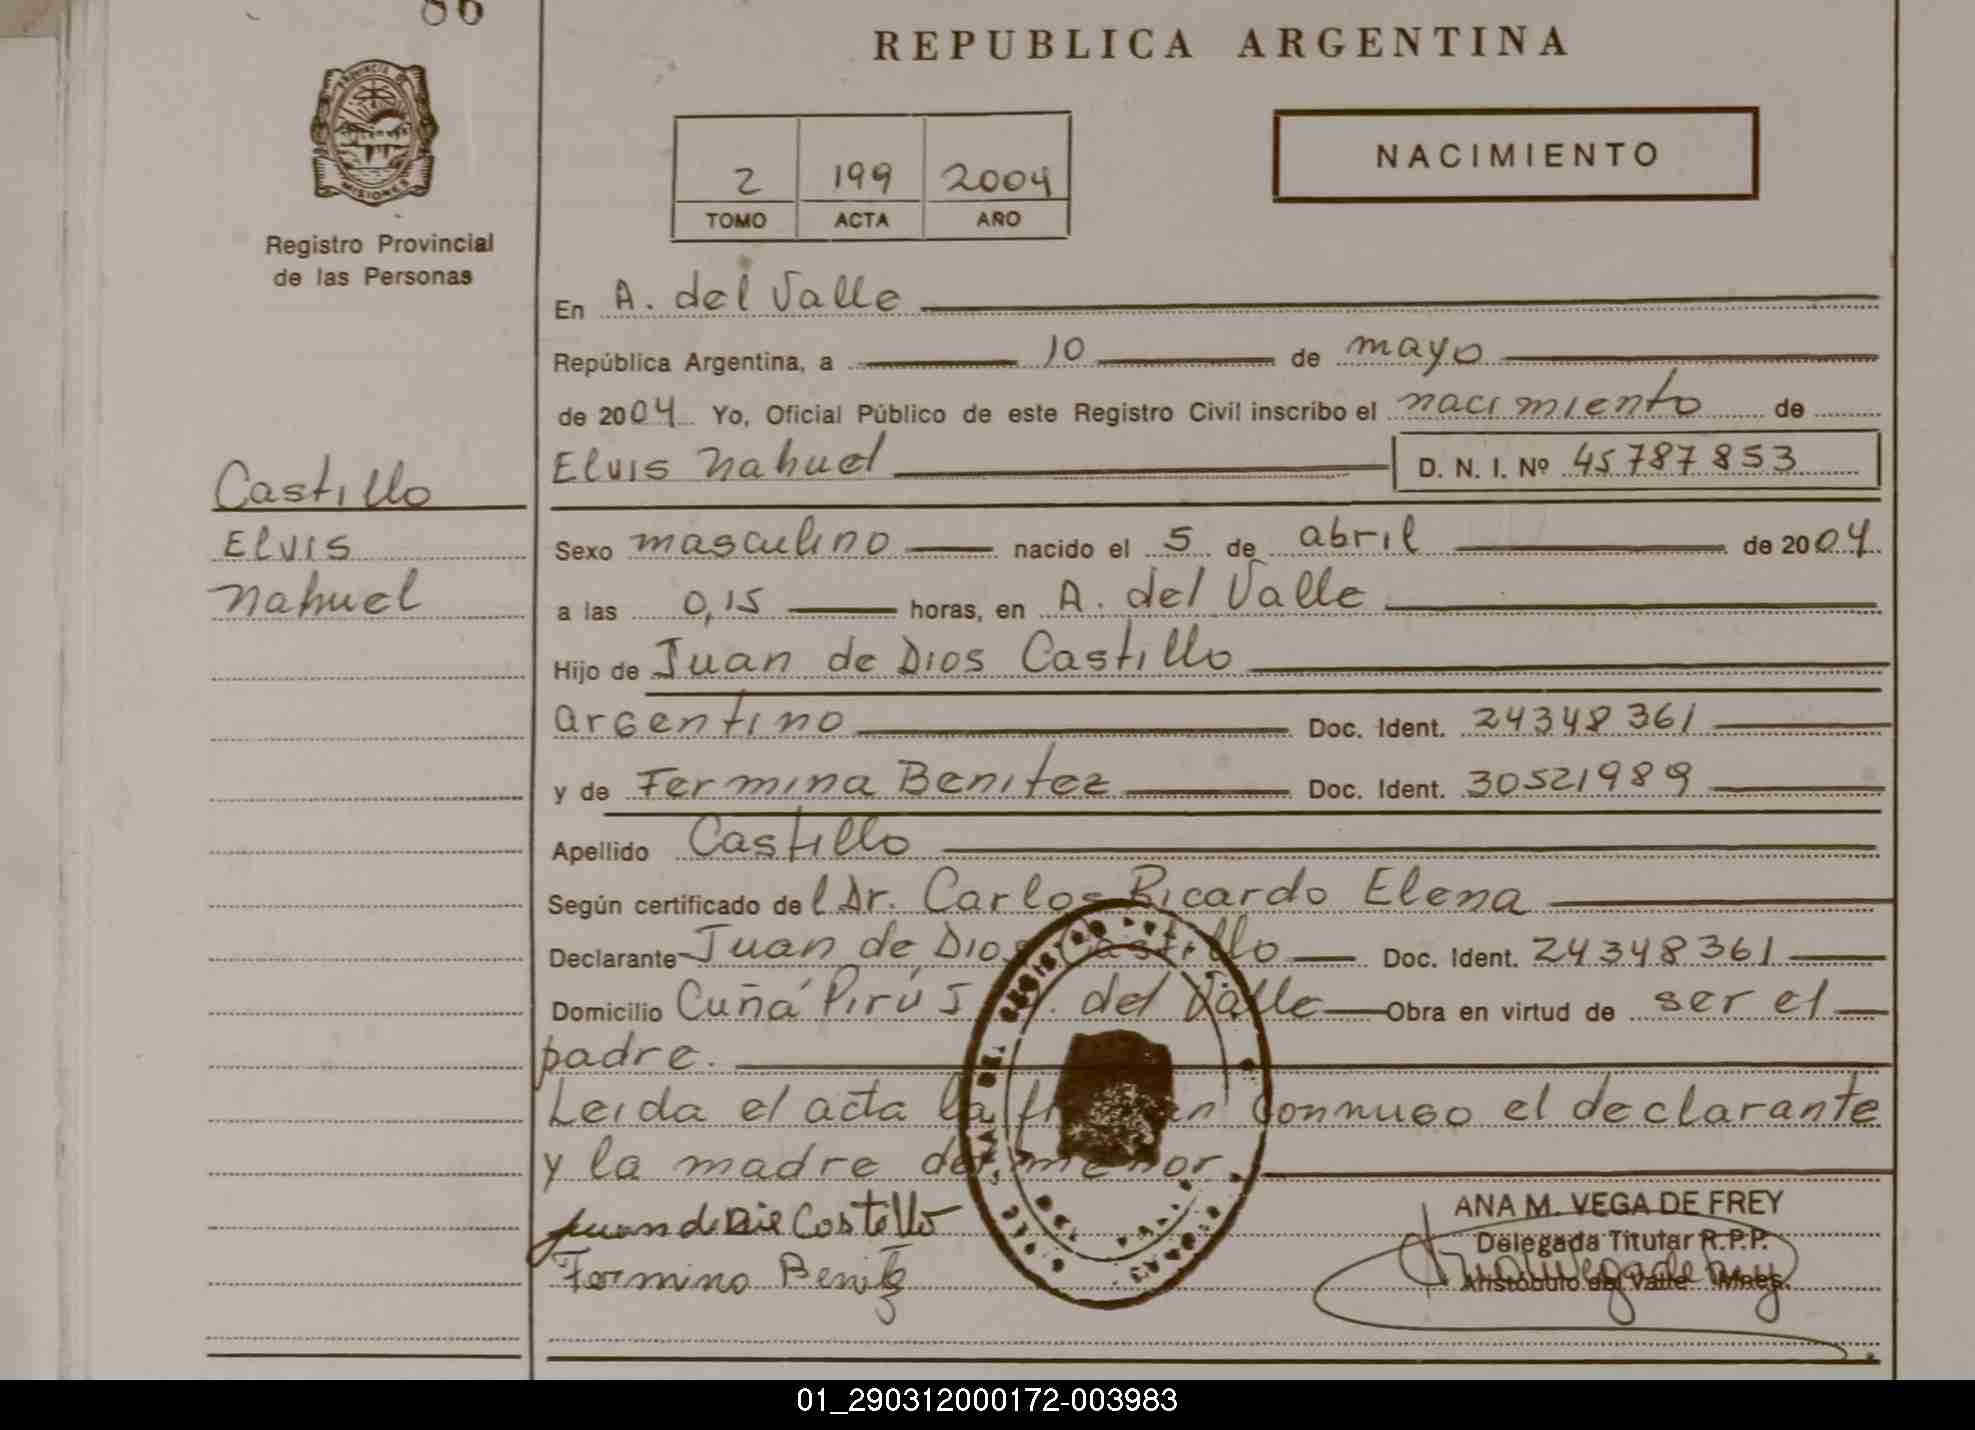 86
REPUBLICA ARGENTINA
PROVINCIA DE
MISIONES
Registro Provincial
de las Personas
2 199 2004
TOMO ACTA AÑO
NACIMIENTO
En A. del Valle
República Argentina, a 10 de mayo
de 2004 Yo, Oficial Público de este Registro Civil inscribo el nacimiento de
Elvis Nahuel D. N. I. Nº 45787853
Castillo
Elvis
Nahuel
Sexo masculino nacido el 5 de abril de 2004
a las 0,15 horas, en A. del Valle
Hijo de Juan de Dios Castillo
argentino Doc. Ident. 24348361
y de Fermina Benitez Doc. Ident. 30521989
Apellido Castillo
Según certificado del Dr. Carlos Ricardo Elena
Declarante Juan de Dios Castillo Doc. Ident. 24348361
Domicilio Cuñá Pirú I A. del Valle Obra en virtud de ser el
padre.
Leida el acta la firman conmigo el declarante
y la madre del menor
Juan de Dios Castillo
Fermino Benitz
ANA M. VEGA DE FREY
Delegada Titular R.P.P.
Aristóbulo del Valle Mnes.
01_290312000172-003983